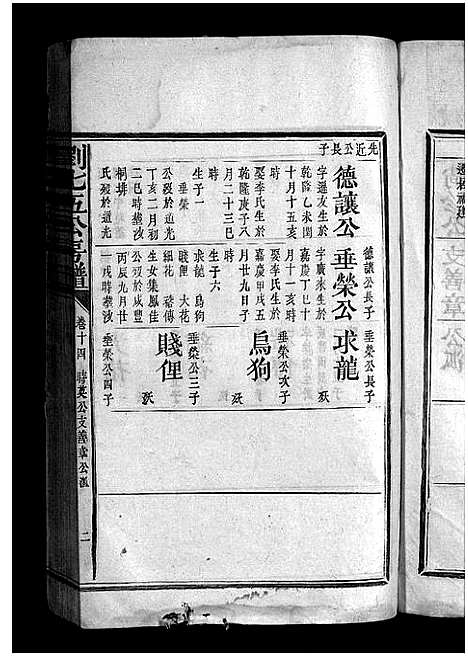 先近公長子
德讓公
字暹友生於
乾隆乙未閏
十月十五亥
時
娶李氏生於
乾隆庚子八
月二十三巳
時
生子一
垂榮
公歿於道光
丁亥二月初
二巳時葬沙
桐排
氏歿於道光
德讓公長子
垂榮公
字廣來生於
嘉慶丁巳十
月十一亥時
娶李氏生於
嘉慶甲戌五
月廿九日子
時
生子六
求龍 烏狗
賤俚 大花
細花 發傳
生女集鳳佳
公歿於咸豐
丙辰九月廿
一戌時葬沙
垂榮公長子
求龍
歿
垂榮公次子
烏狗
歿
垂榮公三子
賤俚
歿
垂榮公四子
劉七五公房譜
卷十四
公支善章公派
二
支善章公派